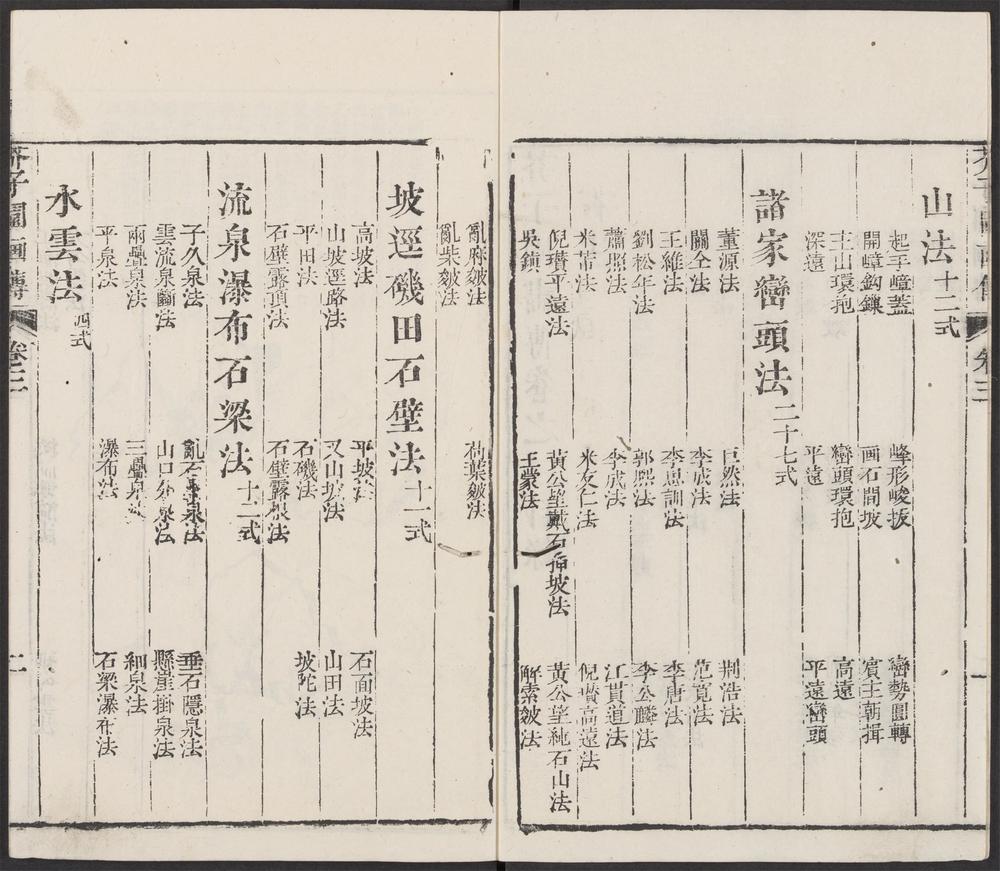 山法十二式
起手嶂蓋 峰形峻拔 巒勢圓轉
開嶂鈎鏁 画石間坡 賓主朝揖
主山環抱 巒頭環抱 高遠
深遠 平遠 平遠巒頭
諸家巒頭法二十七式
董源法 巨然法 荆浩法
關仝法 李成法 范寛法
王維法 李思訓法 李唐法
劉松年法 郭熙法 李公麟法
蕭照法 李成法 江貫道法
米芾法 米友仁法 倪瓚高遠法
倪瓚平遠法 黃公望戴石伸坡法 黃公望純石山法
吳鎮 王蒙法 解索皴法
亂麻皴法 荷葉皴法
亂柴皴法
坡逕磯田石壁法十一式
高坡法 平坡法 石面坡法
山坡逕路法 又山坡法 山田法
平田法 石磯法 坡陀法
石壁露頂法 石壁露根法
流泉瀑布石梁法十二式
子久泉法 亂石疊泉法 垂石隱泉法
雲流泉斷法 山口分泉法 懸崖掛泉法
兩疊泉法 三疊泉法 細泉法
平泉法 瀑布法 石梁瀑布法
水雲法四式
芥子園画傳 卷三 二